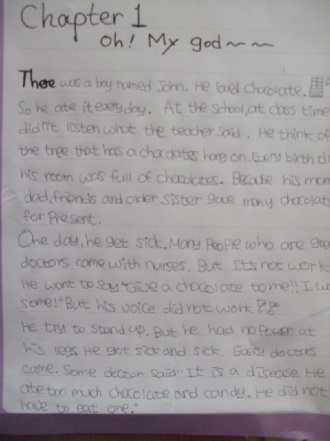 Chapter 1
Oh! My god~~
There was a boy named John. He lovel chocolate.
So he ate it everyday. At the school, at class time
didn't listen what the teacher said. He think of
the tree that has a chocolates hang on. Every birth d
his room was full of chocolates. Because his mom
dad, friends and older sister gave many chocolat
for present.
One day, he get sick. Many People who are grea
doctors came with nurses. But It's not work
He want to say "Give a chocolate to me!! I w
some!" But his voice did not work??
He try to stand up. But he had no power at
his legs. He got sick and sick. Every doctors
came. Some doctor said "It is a disease. He
ate too much chocolate and candy. He did not
have to eat one."